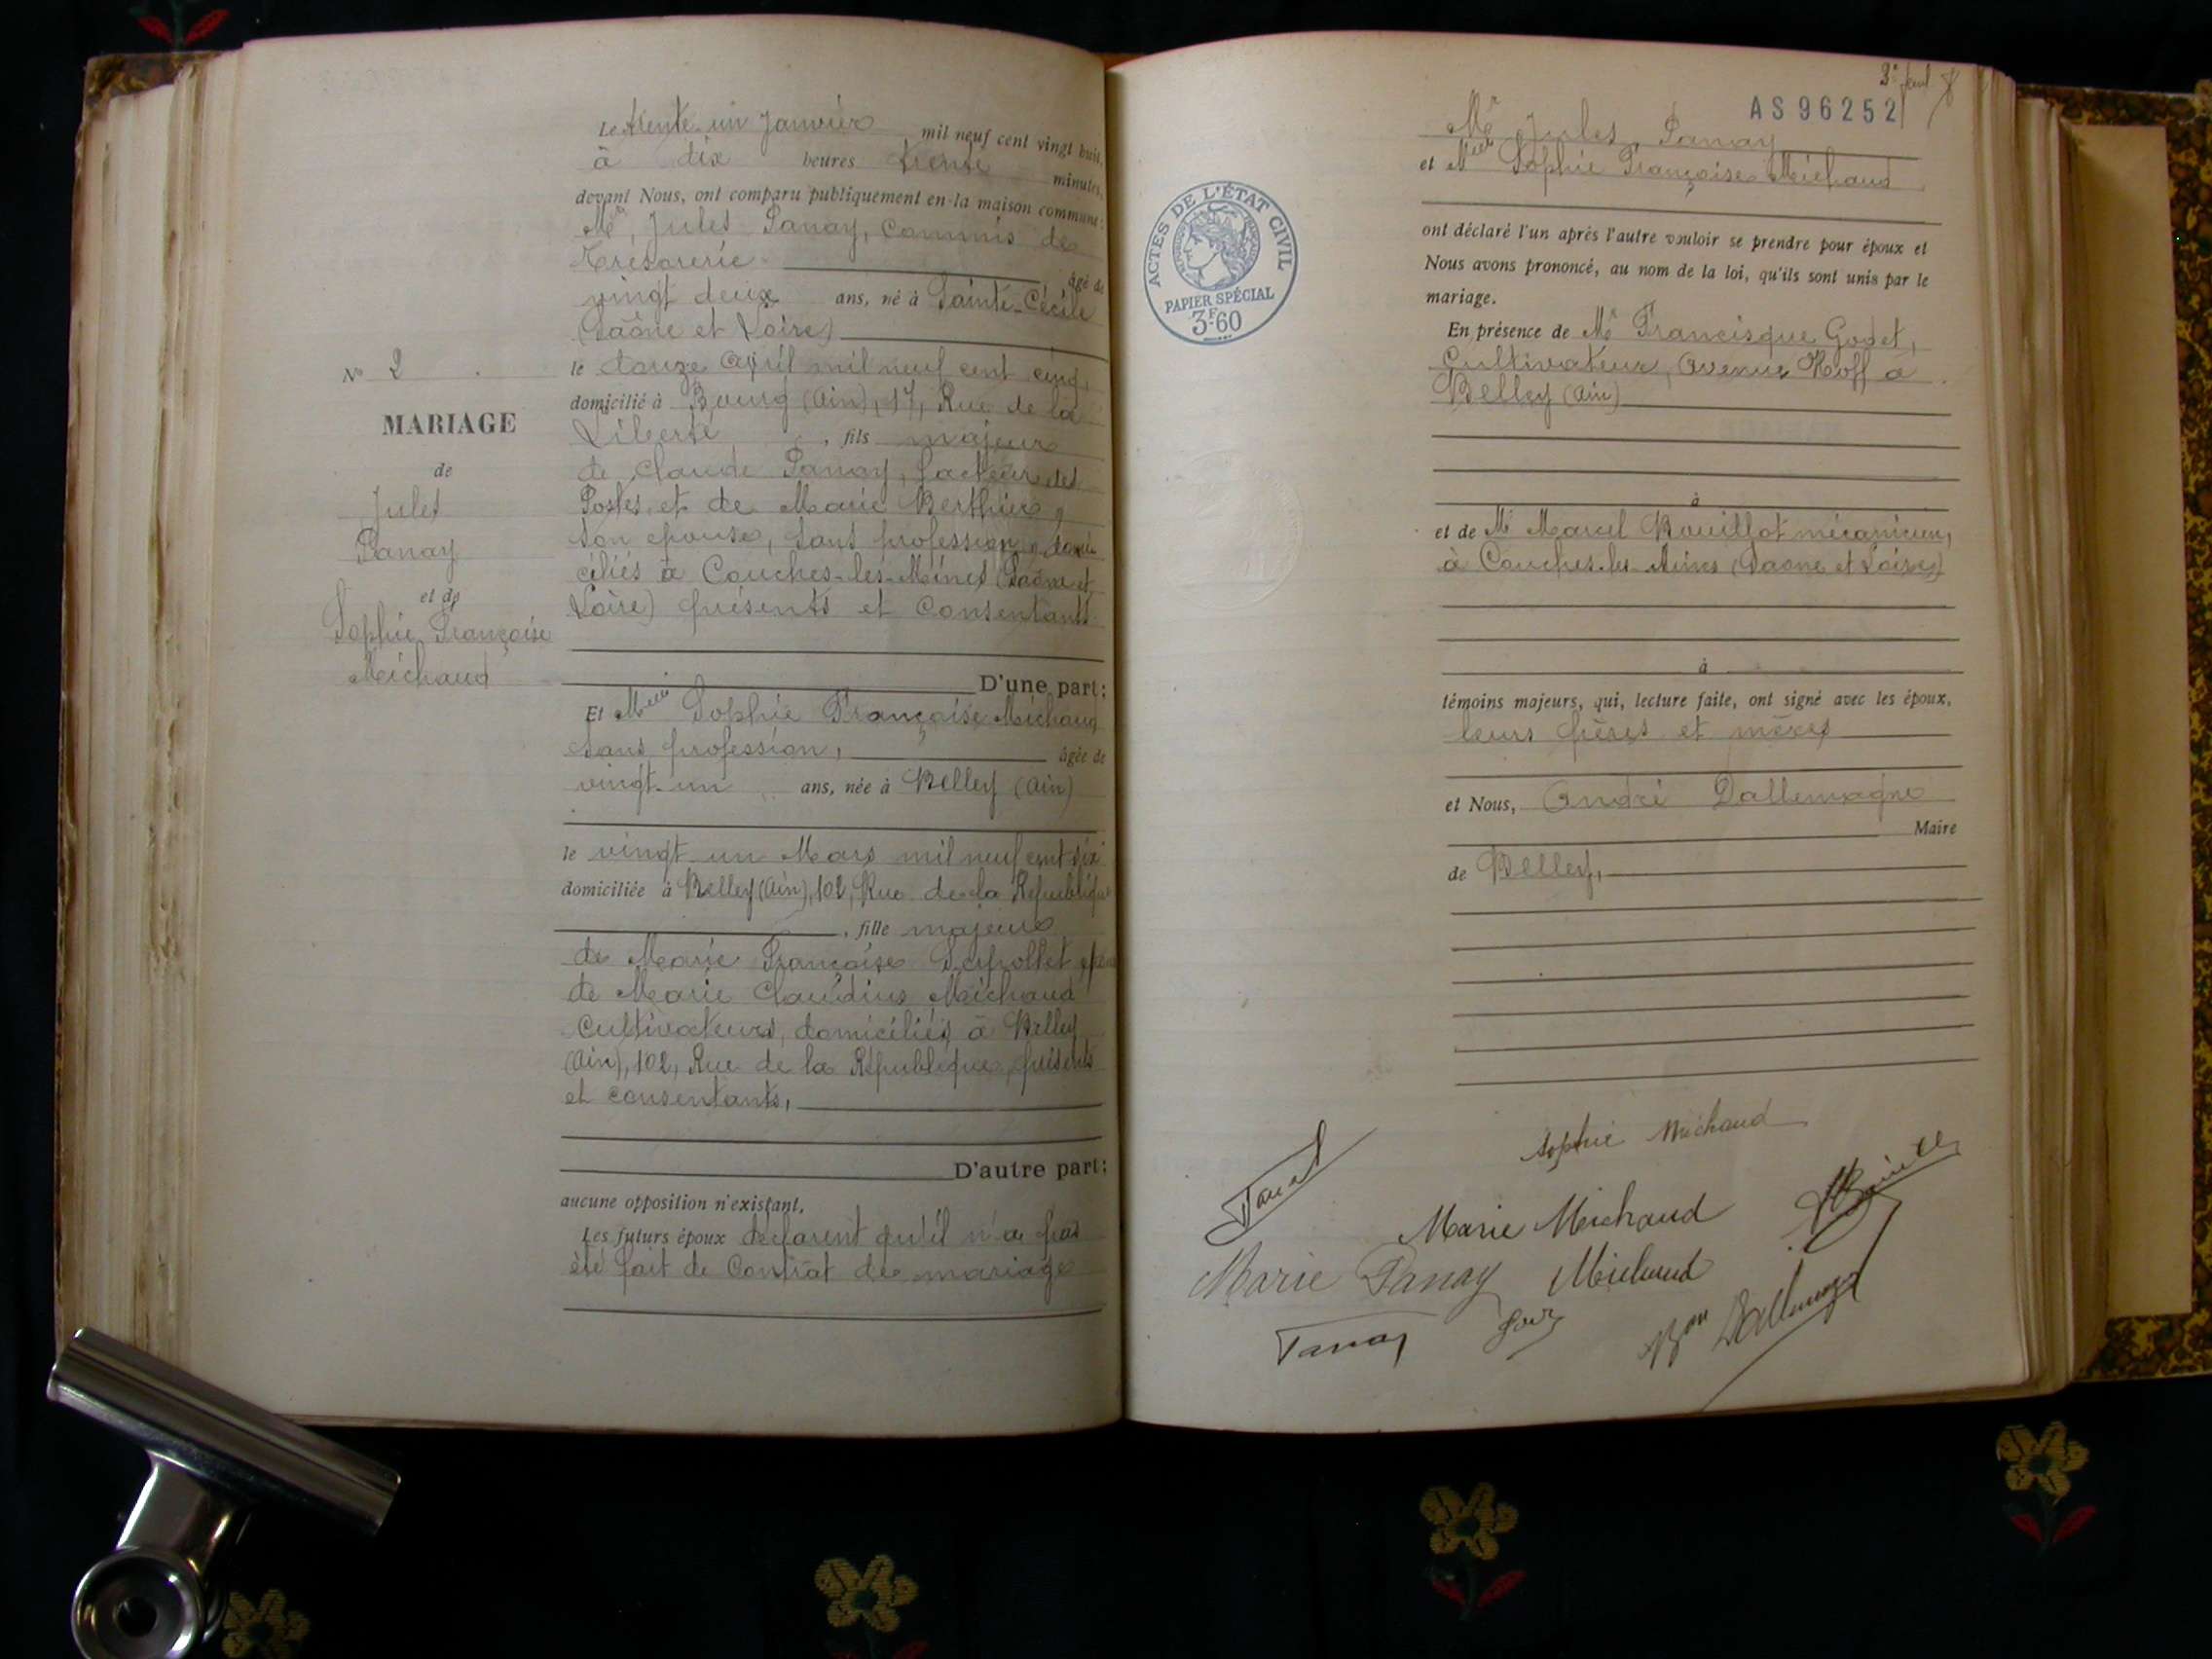 Le trente-un Janvier mil neuf cent vingt huit,
à dix heures trente minutes,
devant Nous, ont comparu publiquement en la maison commune :
Mr, Jules Panay, Commis de
Trésorerie âgé de
vingt deux ans, né à Sainte-Cécile
(Saône et Loire)
le douze Avril mil neuf cent cinq,
domicilié à Bourg (Ain), 17, Rue de la
Liberté, fils majeur
de Claude Panay, facteur des
Postes, et de Marie Berthier,
son épouse, sans profession, domi-
ciliés à Couches-les-Mines (Saône et
Loire) présents et Consentants
D'une part :
Et Melle Sophie Françoise Michaud
sans profession, âgée de
vingt-un ans, née à Belley (Ain)
le vingt-un Mars mil neuf cent six
domiciliée à Belley (Ain), 102, Rue de la République
, fille majeure
de Marie Françoise
de Marie Claudius Michaud
Cultivateurs, domiciliés à Belley
(Ain), 102, Rue de la République, présents
et consentants,
D'autre part :
aucune opposition n'existant.
Les futurs époux déclarent qu'il n'a pas
été fait de Contrat de mariage
No 2
MARIAGE
de
Jules
Panay
et de
Sophie Françoise
Michaud
AS96252
ACTES DE L'ÉTAT CIVIL
PAPIER SPÉCIAL
3F.60
Mr Jules, Panay
et Melle Sophie Françoise Michaud
ont déclaré l'un après l'autre vouloir se prendre pour époux et
Nous avons prononcé, au nom de la loi, qu'ils sont unis par le
mariage.
En présence de Mr Francisque Godet,
Cultivateur, Avenue Hoff à
Belley (Ain)
à
et de Mr Marcel Bouillot mécanicien,
à Couches-les-Mines (Saône et Loire)
à
témoins majeurs, qui, lecture faite, ont signé avec les époux,
leurs pères et mères
et Nous, André Dallemagne
Maire
de Belley,
Sophie Michaud
Panay
Marie Michaud
Marie Panay
Michaud
Panay
Bon Dallemagne